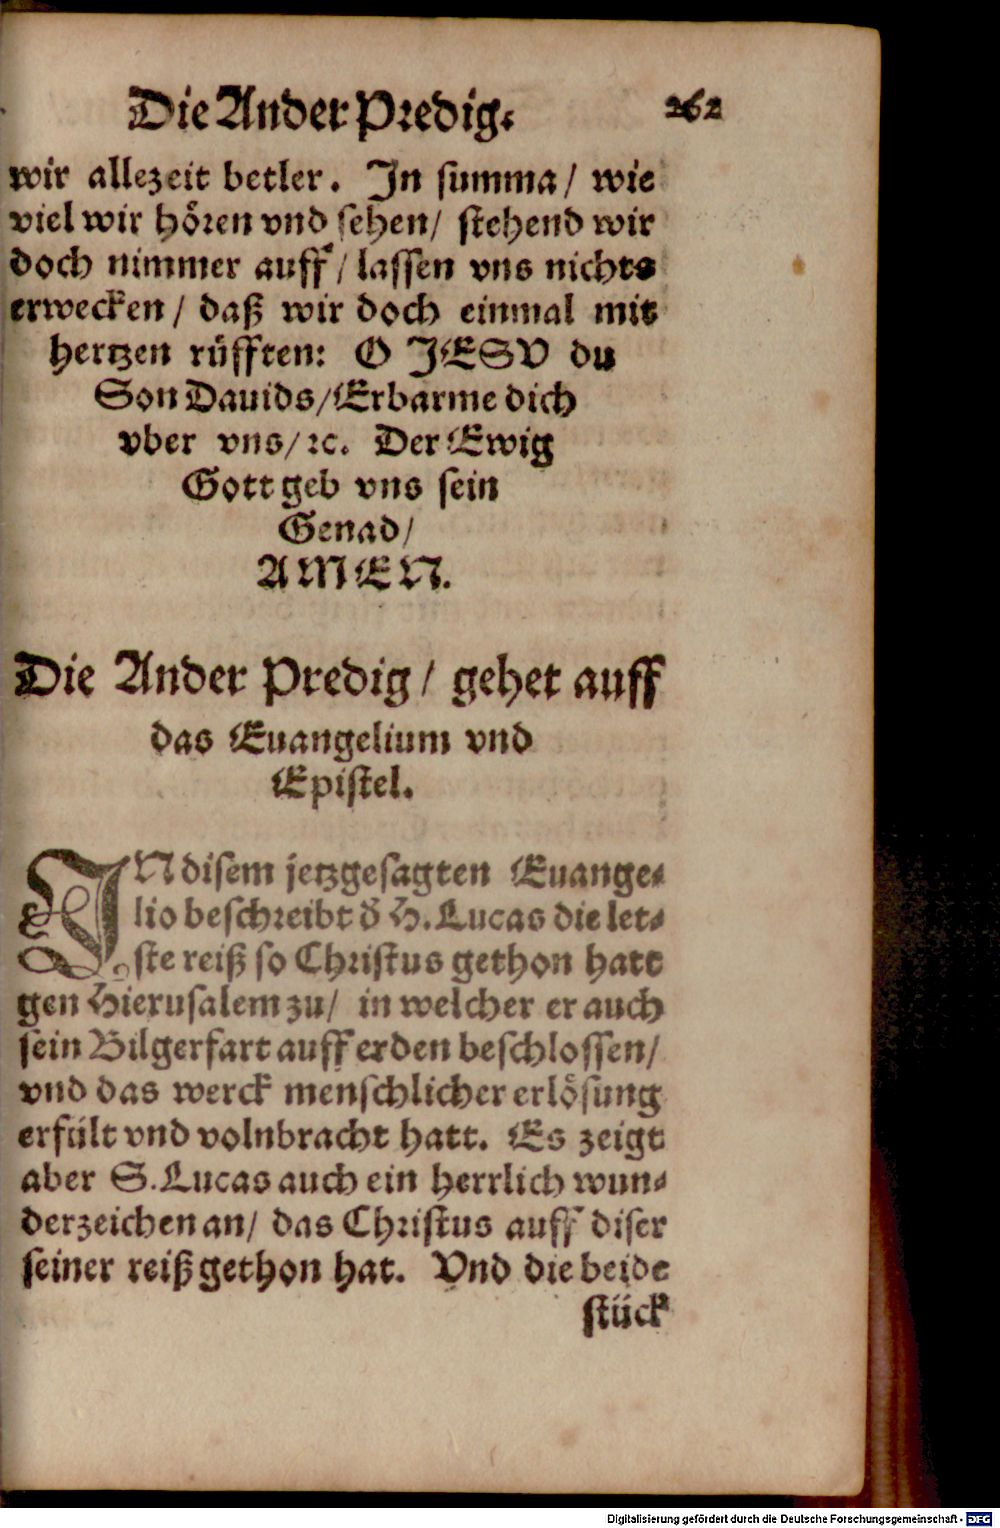 Die Ander Predig. 262
wir allezeit betler. In summa/ wie
viel wir hören vnd sehen/ stehend wir
doch nimmer auff/ lassen vns nichts
erwecken/ daß wir doch einmal mit
hertzen rüfften: O JESV du
Son Dauids/Erbarme dich
vber vns/ꝛc. Der Ewig
Gott geb vns sein
Genad/
AMEN.
Die Ander Predig/ gehet auff
das Euangelium vnd
Epistel.
IN disem jetzgesagten Euange⸗
lio beschreibt d̕ H. Lucas die let⸗
ste reiß so Christus gethon hatt
gen Hierusalem zu/ in welcher er auch
sein Bilgerfart auff erden beschlossen/
vnd das werck menschlicher erlösung
erfült vnd volnbracht hatt. Es zeigt
aber S. Lucas auch ein herrlich wun⸗
derzeichen an/ das Christus auff diser
seiner reiß gethon hat. Vnd die beide
stück
Digitalisierung gefördert durch die Deutsche Forschungsgemeinschaft - DFG